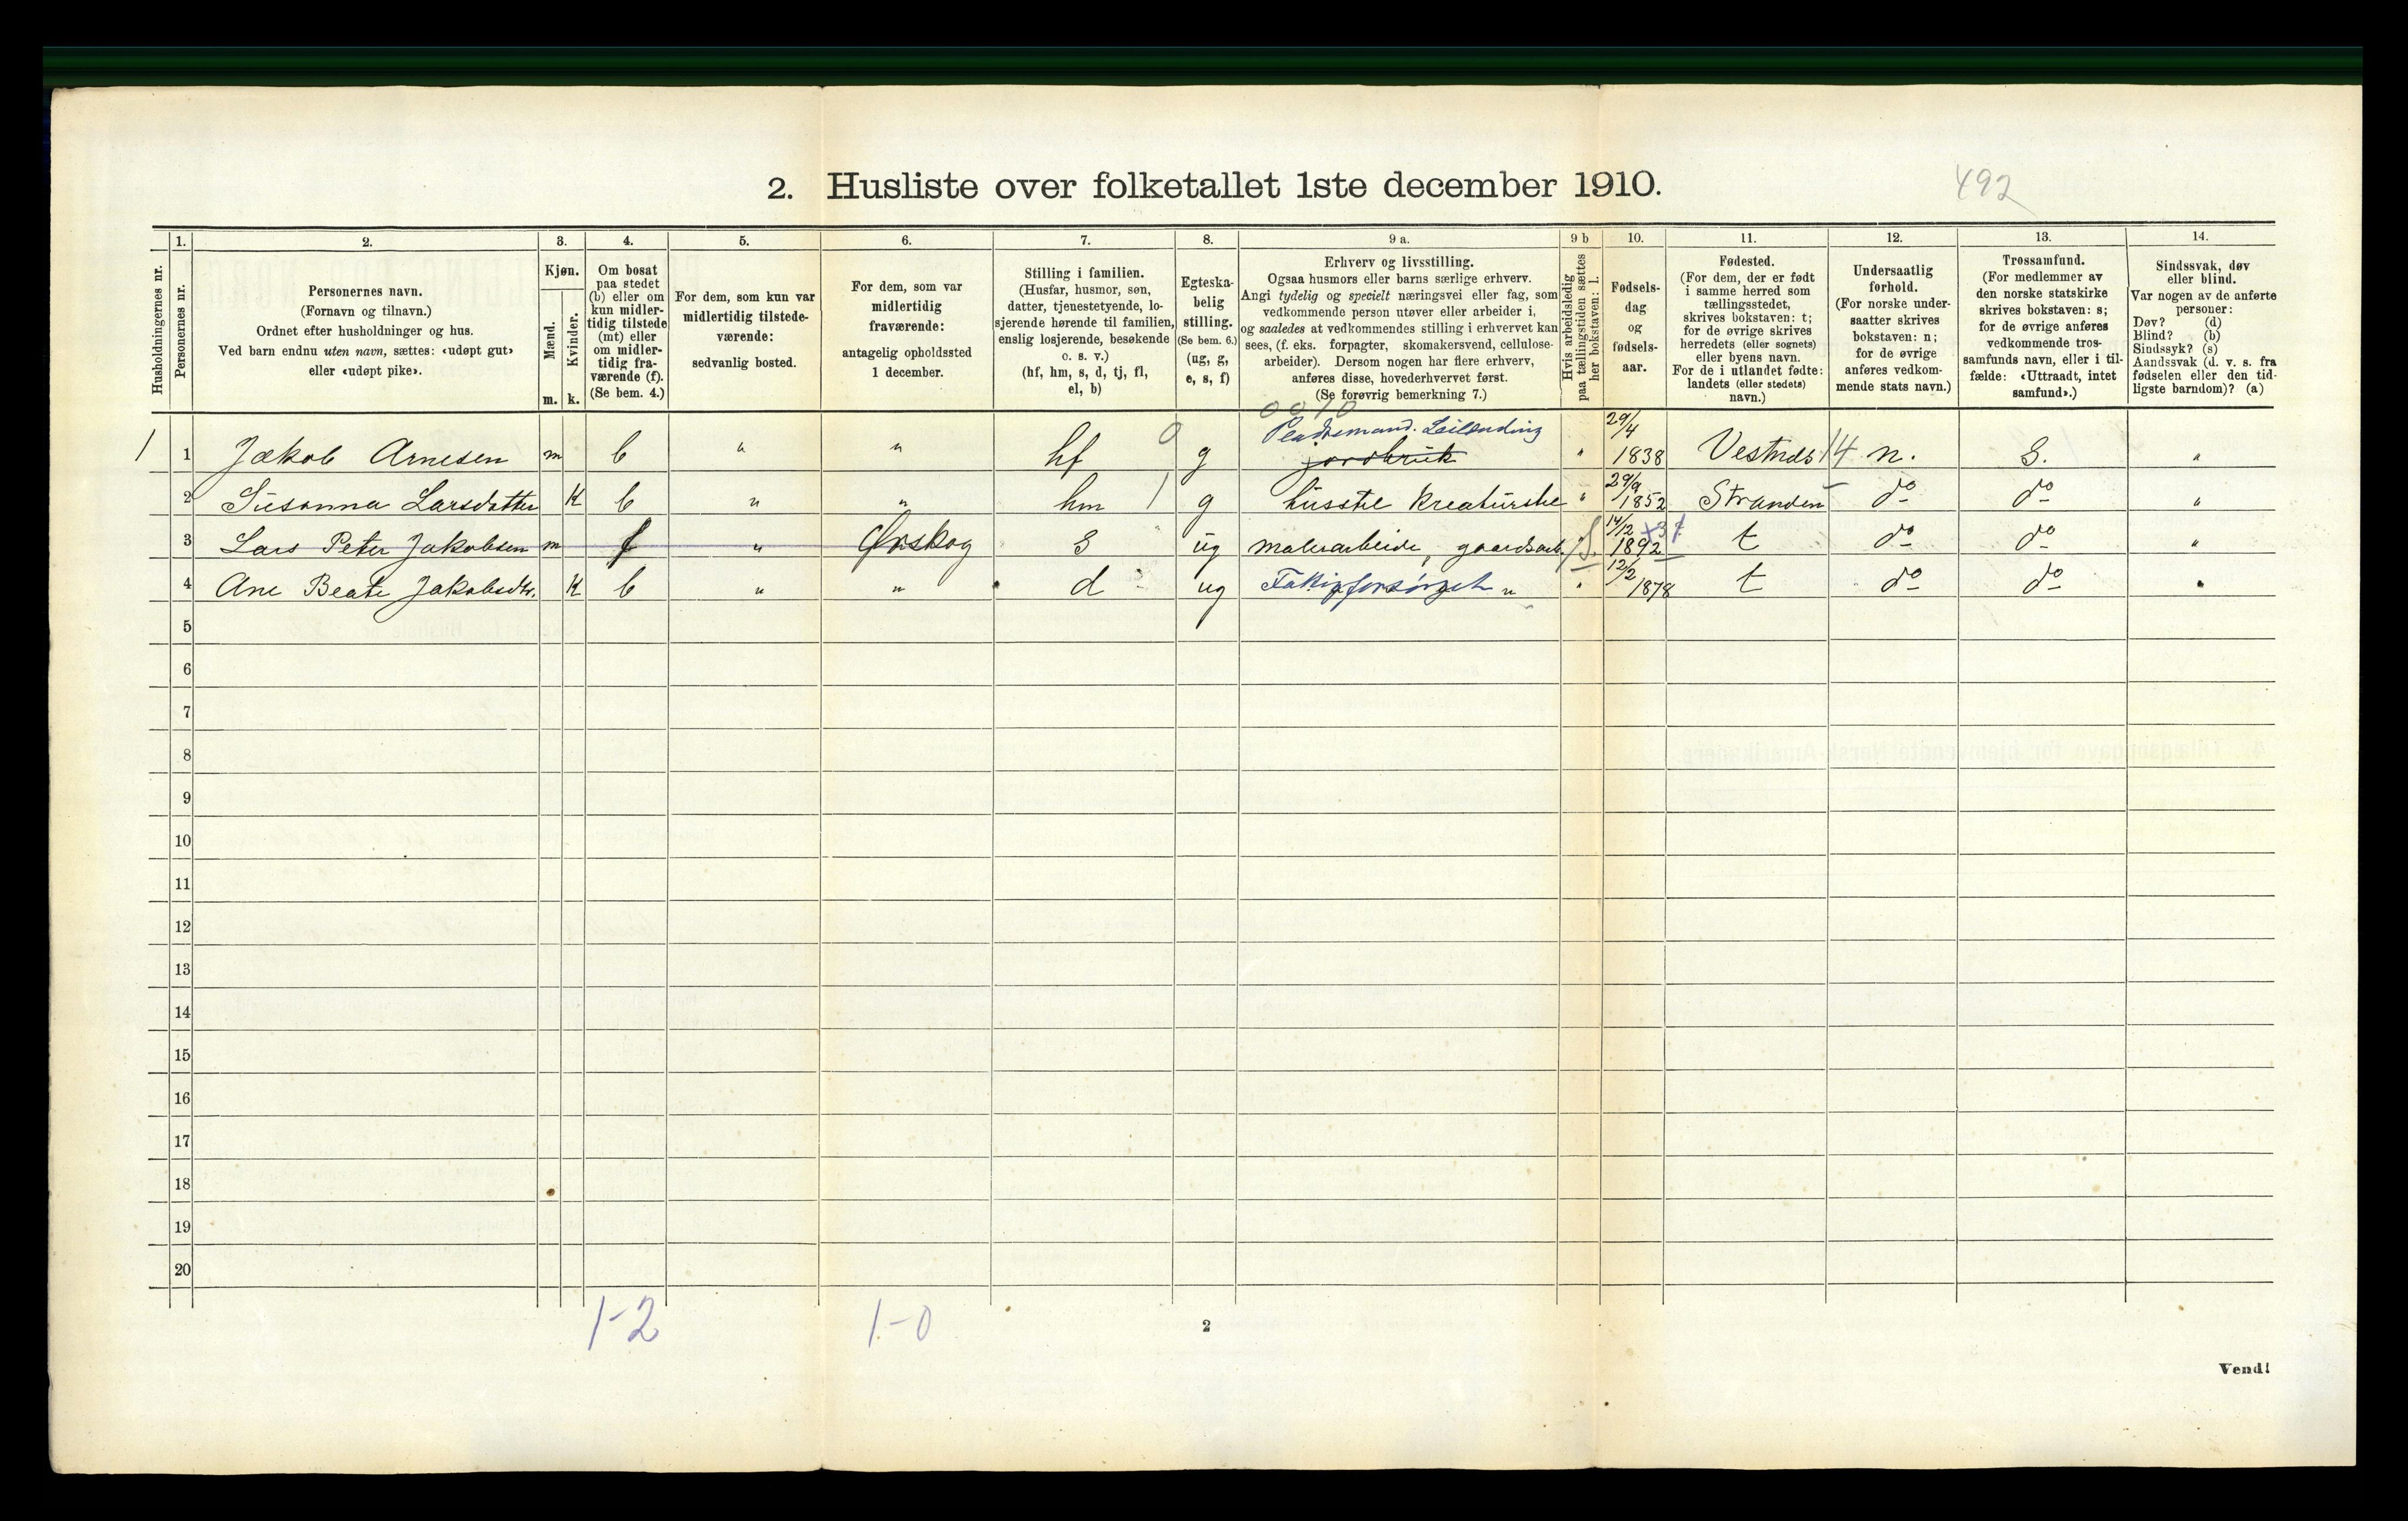 2. Husliste over folketallet 1ste december 1910.
492
Husholdningernes nr.
1.
Personernes nr.
2.
Personernes navn.
(Fornavn og tilnavn.)
Ordnet efter husholdninger og hus.
Ved barn endnu uten navn, sættes: «udøpt gut»
eller «udøpt pike».
3.
Kjøn.
Mænd.
Kvinder.
m. k.
4.
Om bosat
paa stedet
(b) eller om
kun midler-
tidig tilstede
(mt) eller
om midler-
tidig fra-
værende (f).
(Se bem. 4.)
5.
For dem, som kun var
midlertidig tilstede-
værende:
sedvanlig bosted.
6.
For dem, som var
midlertidig
fraværende:
antagelig opholdssted
1 december.
7.
Stilling i familien.
(Husfar, husmor, søn,
datter, tjenestetyende, lo-
sjerende hørende til familien,
enslig losjerende, besøkende
o. s. v.)
(hf, hm, s, d, tj, fl,
el, b)
8.
Egteska-
belig
stilling.
(Se bem. 6.)
(ug, g,
e, s, f)
9 a.
Erhverv og livsstilling.
Ogsaa husmors eller barns særlige erhverv.
Angi tydelig og specielt næringsvei eller fag, som
vedkommende person utøver eller arbeider i,
og saaledes at vedkommendes stilling i erhvervet kan
sees, (f. eks. forpagter, skomakersvend, cellulose-
arbeider). Dersom nogen har flere erhverv,
anføres disse, hovederhvervet først.
(Se forøvrig bemerkning 7.)
9 b
Hvis arbeidsledig
paa tællingstiden sættes
her bokstaven: l.
10.
Fødsels-
dag
og
fødsels-
aar.
11.
Fødested.
(For dem, der er født
i samme herred som
tællingsstedet,
skrives bokstaven: t;
for de øvrige skrives
herredets (eller sognets)
eller byens navn.
For de i utlandet fødte:
landets (eller stedets)
navn.)
12.
Undersaatlig
forhold.
(For norske under-
saatter skrives
bokstaven: n;
for de øvrige
anføres vedkom-
mende stats navn.)
13.
Trossamfund.
(For medlemmer av
den norske statskirke
skrives bokstaven: s;
for de øvrige anføres
vedkommende tros-
samfunds navn, eller i til-
fælde: «Uttraadt, intet
samfund».)
14.
Sindssvak, døv
eller blind.
Var nogen av de anførte
personer:
Døv? (d)
Blind? (b)
Sindssyk? (s)
Aandssvak (d. v. s. fra
fødselen eller den tid-
ligste barndom)? (a)
0 0 1 0
1 1 Jakob Arnesen m b " " hf 0 g Leilending jordbruk " 29/4 1838 Vestnes 14 n. S. "
2 Susanna Larsdatter k b " " hm 1 g husstel kreaturstel " 29/9 1852 Stranden do do "
3 Lars Peter Jakobsen m f " Ørskog s ug malerarbeide, gaardsarb. 14/12 1892 t do do "
4 Ane Beate Jakobsdtr. k b " " d ug Fattigforsørget " " 12/2 1878 t do do "
5
6
7
8
9
10
11
12
13
14
15
16
17
18
19
20
1-2
1-0
2
Vend!